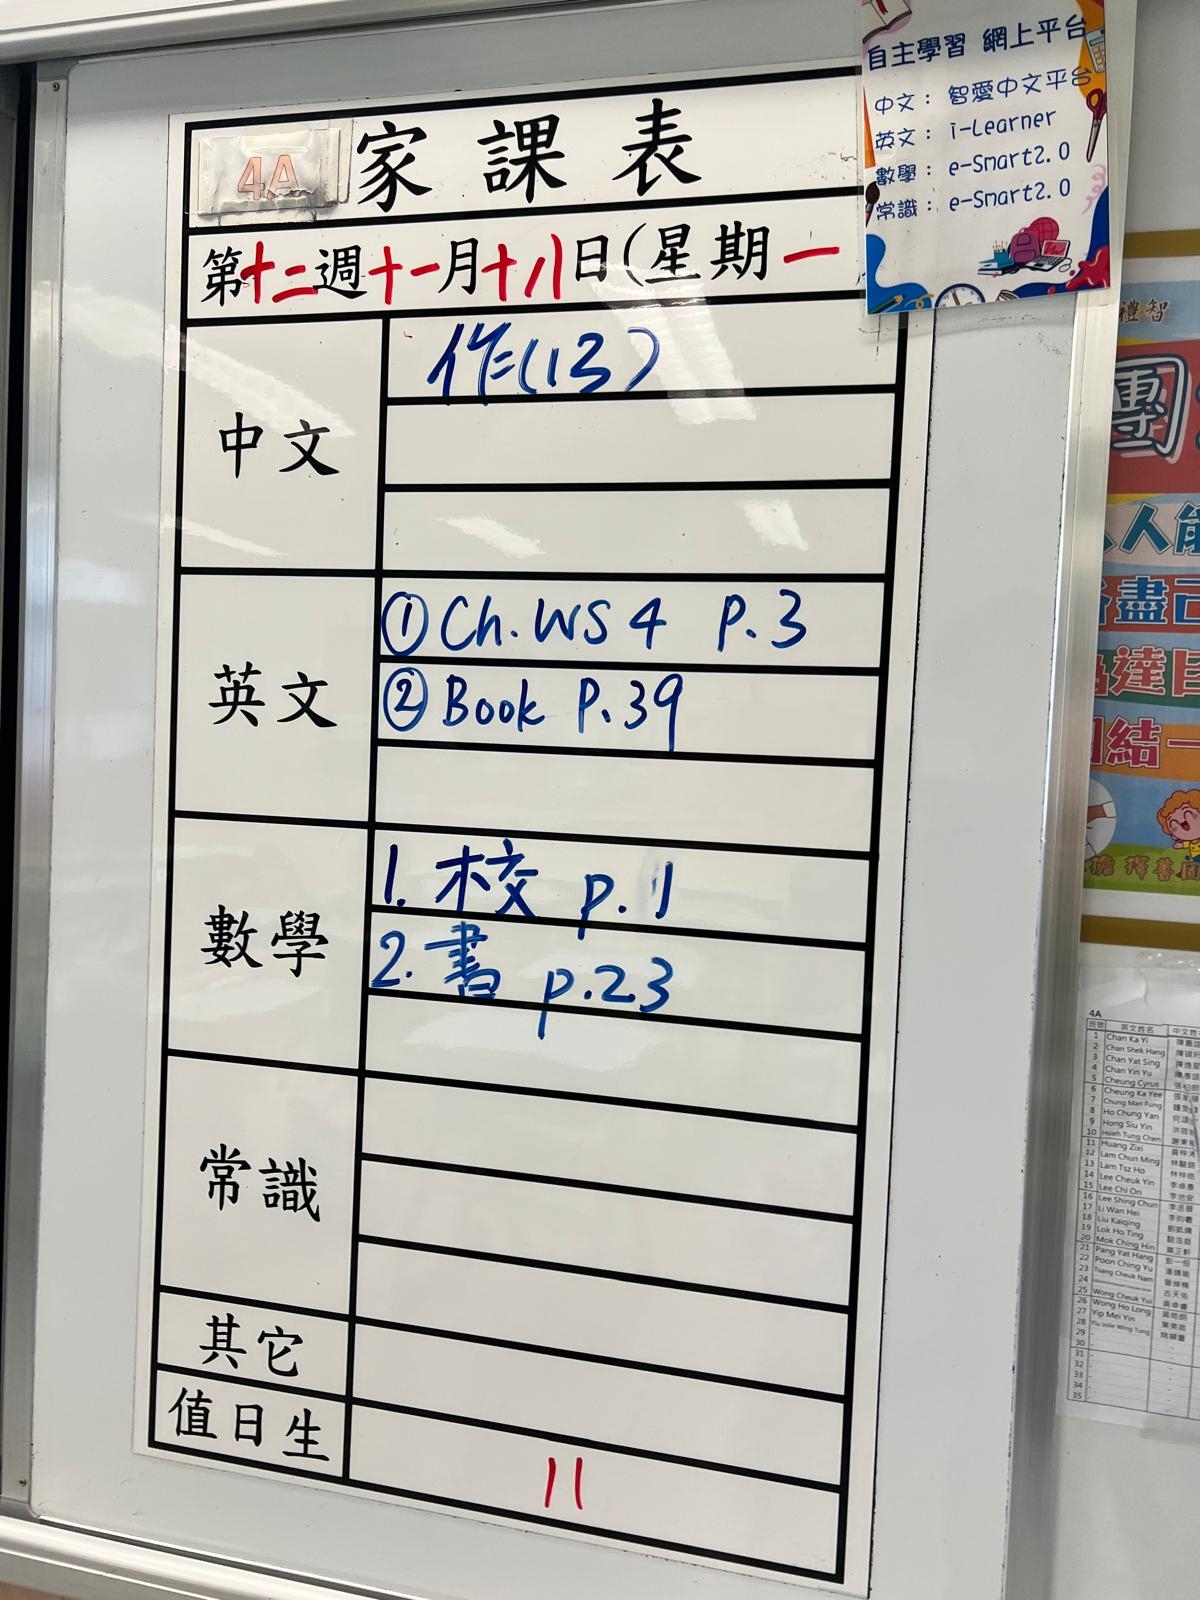 4A 家課表
第十二週十一月十八日(星期一
中文
作(13)
英文
① Ch. WS 4 P.3
② Book P.39
數學
1. 校 p. 11
2. 書 p.23
常識
其它
值日生
11
自主學習 網上平台
中文: 智愛中文平台
英文: i-Learner
數學: e-Smart2.0
常識: e-Smart2.0
禮智
團
人人能
各盡己
為達目
團結一
擇善固
4A
班號 英文姓名 中文姓
1 Chan Ka Yi
2 Chan Shek Hang
3 Chan Yat Sing
4 Chan Yin Yu
5 Cheung Cyrus
6 Cheung Ka Yee
7 Chung Man Fung
8 Ho Chung Yan
9 Hong Siu Yin
10 Hsieh Tung Chen
11 Huang Zixi
12 Lam Chun Ming
13 Lam Tsz Ho
14 Lee Cheuk Yin
15 Lee Chi On
16 Lee Shing Chun
17 Li Wan Hei
18 Liu Kaiqing
19 Lok Ho Ting
20 Mok Ching Hin
21 Pang Yat Hang
22 Poon Ching Yu
23 Tsang Cheuk Nam
24
25 Wong Cheuk Yui
26 Wong Ho Long
27 Yip Mei Yin
28 Yiu Jolie Wing Tung
29
30
31
32
33
34
35